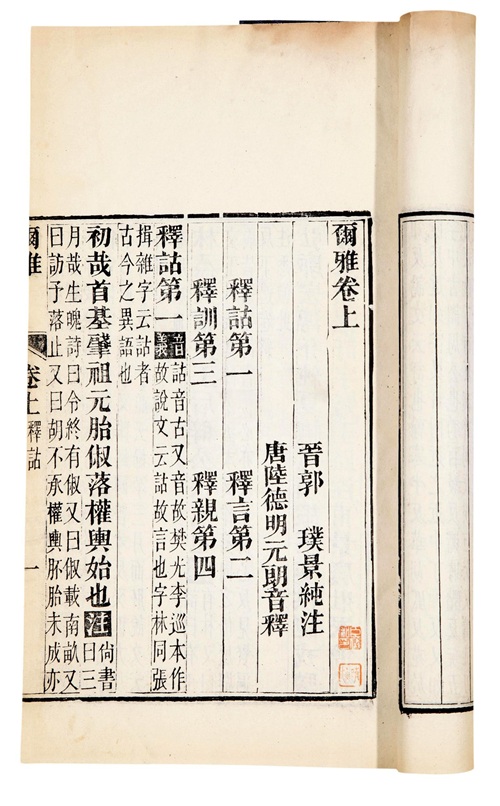 爾雅卷上
晉郭 璞景純注
唐陸德明元朗音釋
釋詁第一 釋言第二
釋訓第三 釋親第四
釋詁第一音義詁音古又音故樊光李巡本作
故說文云詁故言也字林同張
揖雜字云詁者
古今之異語也
初哉首基肇祖元胎俶落權輿始也注尙書
曰三
月哉生魄詩曰令終有俶又曰俶載南畝又
曰訪予落止又曰胡不承權輿胚胎未成亦
爾雅 卷上 釋詁 一